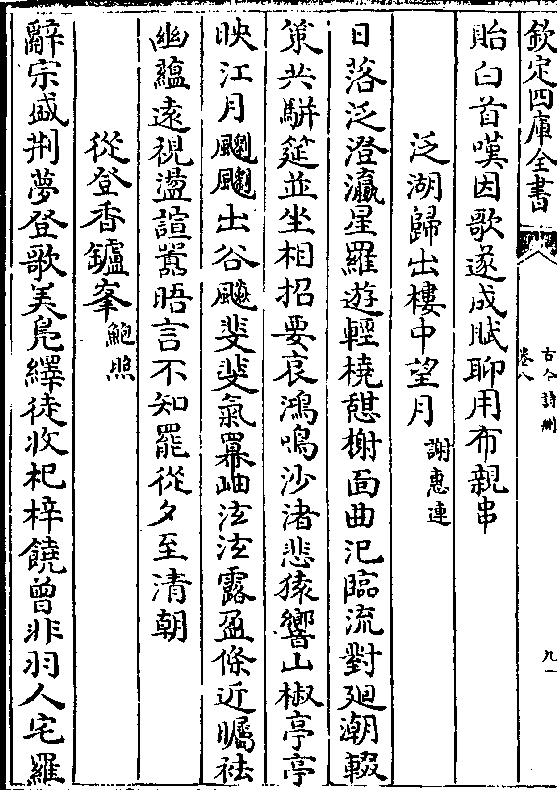 欽定四庫全書
古今詩刪
卷八
九一
貽白首嘆因歌遂成賦聊用布親串
泛湖歸出樓中望月 謝惠連
日落泛澄瀛星羅遊輕橈憩榭面曲汜臨流對廻潮輟
策共駢筵並坐相招要哀鴻鳴沙渚悲猿響山椒亭亭
映江月飀飀出谷飇斐斐氣羃岫泫泫露盈條近矚祛
幽蘊遠視盪諠嚻晤言不知罷從夕至清朝
從登香鑪峯 鮑照
辭宗盛荆夢登歌美鳧繹徒收杞梓饒曾非羽人宅羅